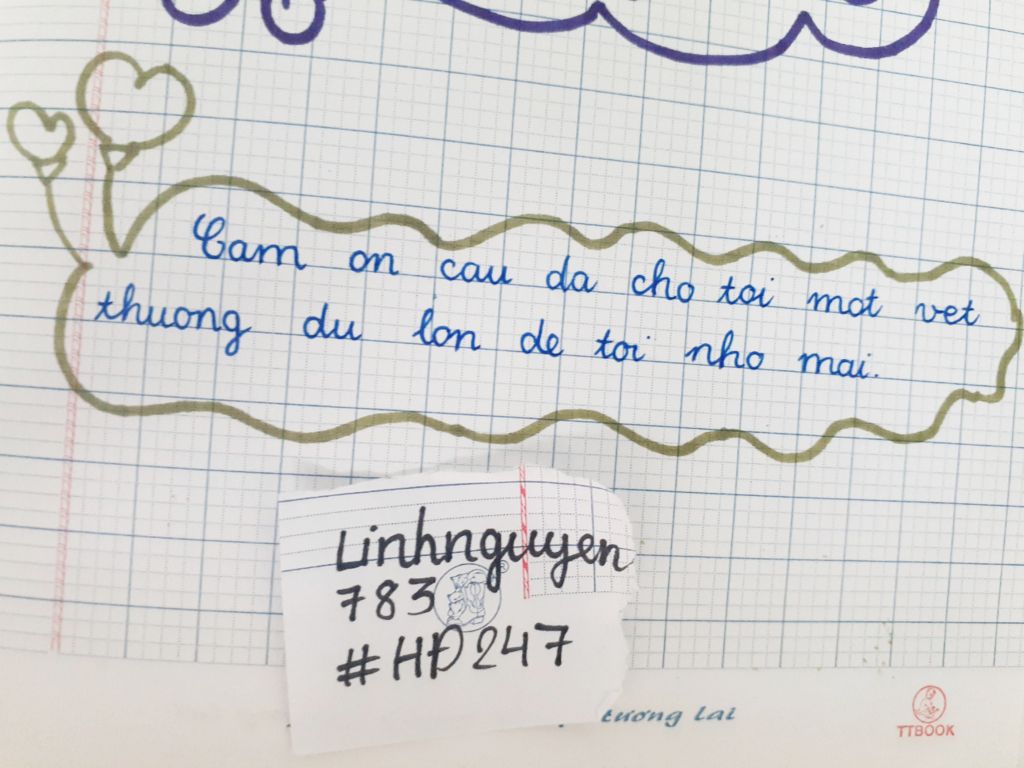 Cam on cau da cho toi mot vet
thuong du lon de toi nho mai.
Linhnguyen
783
#HĐ247
tương lai
TTBOOK